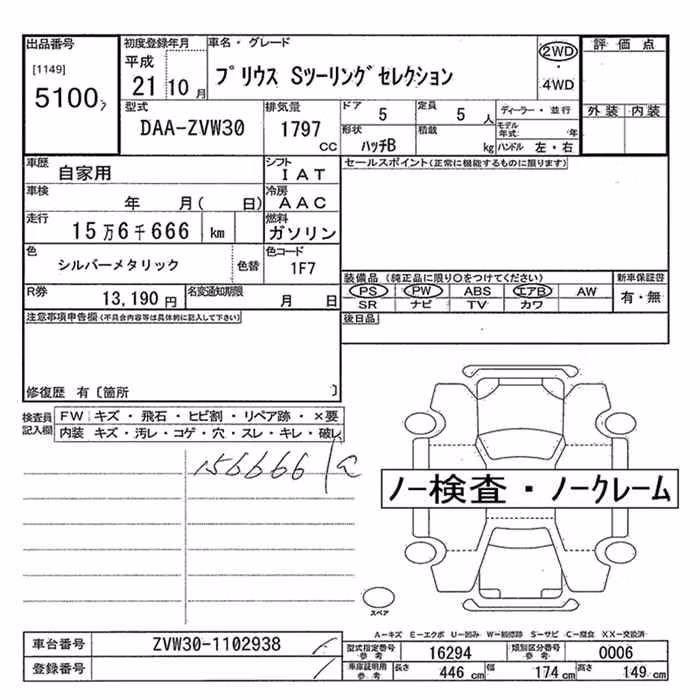 出品番号
[1149]
5100
初度登録年月
平成
21 10 月
車名・グレード
プリウス Sツーリングセレクション
2WD
・
4WD
評価点
外装 内装
型式
DAA-ZVW30
排気量
1797
CC
ドア
5
定員
5 人
形状
ハッチB
積載
kg
ディーラー・並行
モデル年式: 年
ハンドル 左・右
車歴
自家用
シフト
IAT
セールスポイント(正常に機能するものに限ります)
車検
年 月( 日)
冷房
AAC
走行
15万6千666 km
燃料
ガソリン
色
シルバーメタリック
色替
色コード
1F7
装備品(純正品に限り○をつけてください)
新車保証書
PS PW ABS エアB AW
有・無
SR ナビ TV カワ
R券
13,190 円
名変通知期限
月 日
後日品
注意事項申告欄(不具合内容等は具体的に記入して下さい)
修復歴 有〔箇所 〕
検査員記入欄
FW キズ・飛石・ヒビ割・リペア跡・×要
内装 キズ・汚レ・コゲ・穴・スレ・キレ・破レ
156666
ノー検査・ノークレーム
スペア
A-キズ E-エクボ U-凹み W-補修跡 S-サビ C-腐食 XX-交換済
車台番号
ZVW30-1102938
型式指定番号
参考
16294
類別区分番号
参考
0006
登録番号
車庫証明用
参考
長さ
446 cm
幅
174 cm
高さ
149 cm